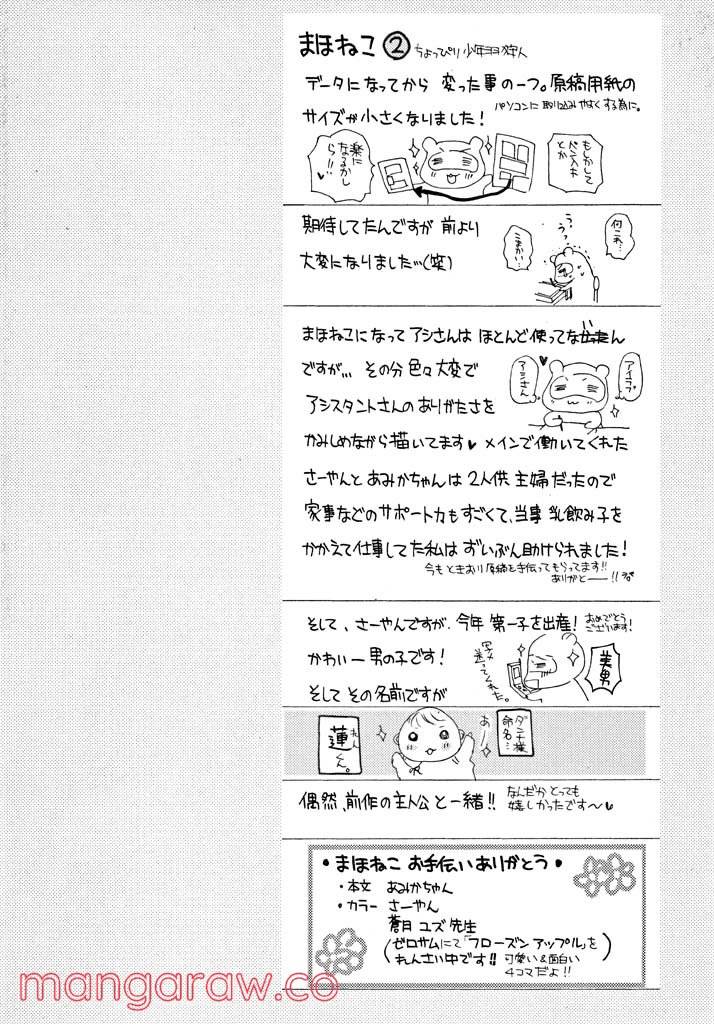 まほねこ②
データになってから 変った事の一つ。原稿用紙の
パソコンに取り込みやすくする為に。
サイズが小さくなりました！
もしかして
ペン入れ
とか
楽に
なるかし
ら!!♥
期待してたんですが 前より
大変になりました…(笑)
何これ…
こまかい…
まほねこになって アシさんは ほとんど使ってな
ですが,,, その分 色々大変で
アシスタントさんの ありがたさを
かみしめながら描いてます♥ メインで働いてくれた
さーやんと あみかちゃんは 2人供 主婦だったので
家事などの サポート力も すごくて、当事 乳飲み子を
かかえて仕事してた私は ずいぶん助けられました！
今も ときおり 原稿を手伝ってもらってます!!
ありがとーー!!
アシさん
そして、さーやんですが、今年 第一子を出産！
おめでとう
ございます！
かわいー男の子です！
写メ
送ってくれた。
美男
そして その名前ですが
ダンナ様
命名…
あーー
蓮くん。
れん
偶然、前作の主人公と一緒!!
なんだか とっても
嬉しかったです〜♥
・まほねこ お手伝いありがとう・
・本文 あみかちゃん
・カラー さーやん
蒼月 ユズ 先生
(ゼロサムにて「フローズン アップル」を
れんさい中です!! 可愛い&面白い
4コマだよ!!)
mangaraw.co